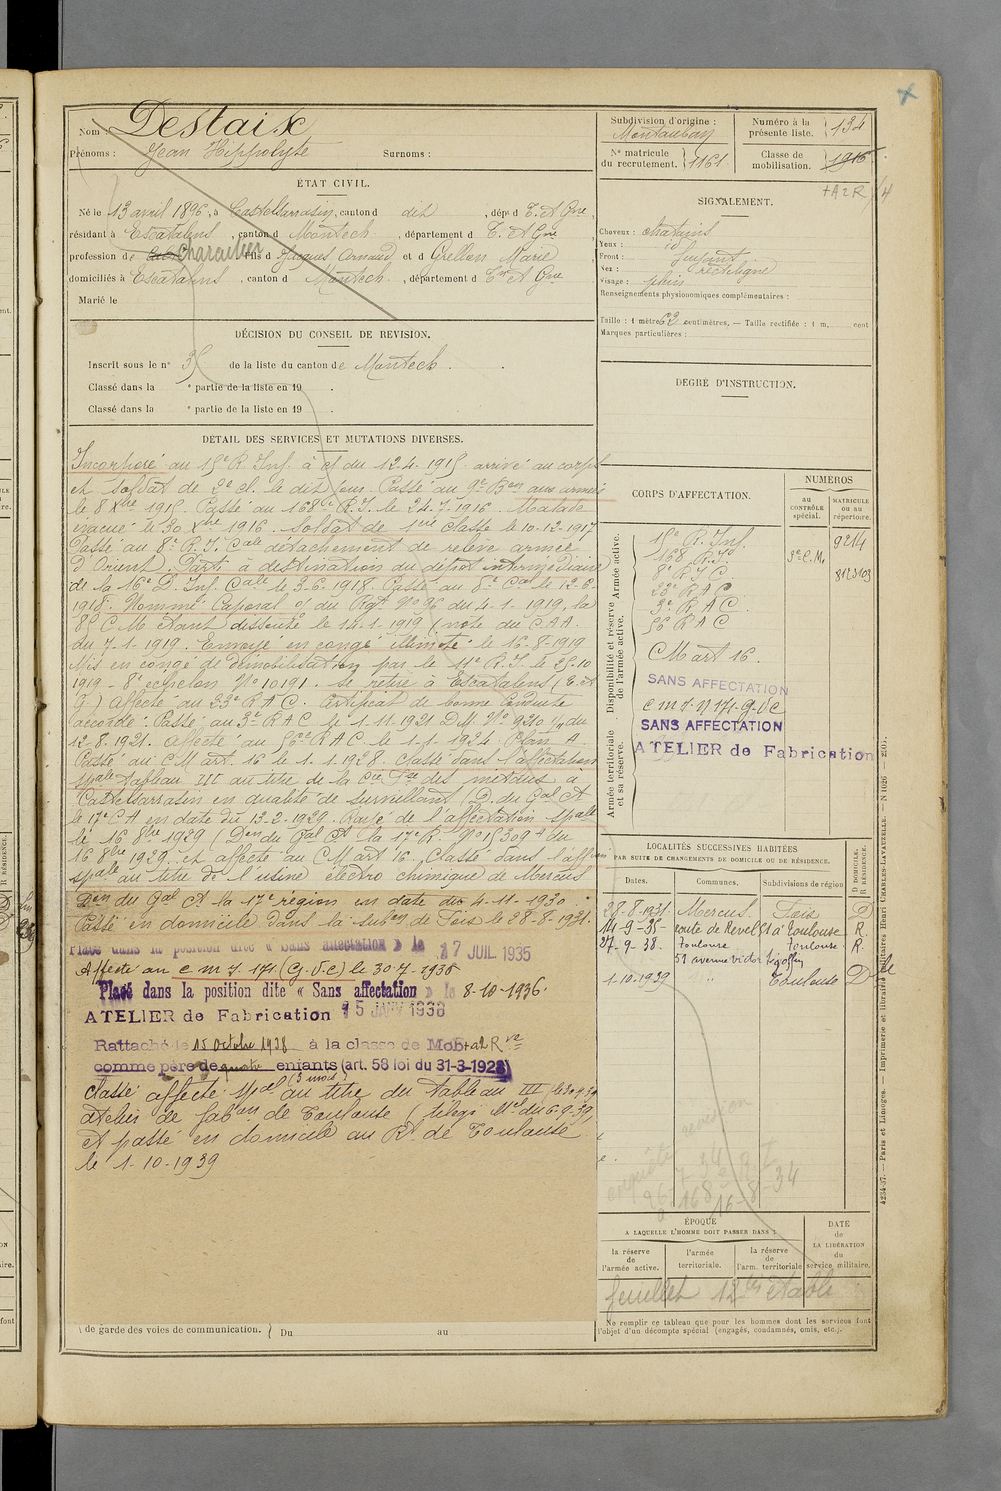 Nom : Destaix
Prénoms : Jean Hippolyte Surnoms :
ÉTAT CIVIL.
Né le 13 avril 1896, à Castelsarrasin, canton d dit, dép t d T. et Gne,
résidant à Escatalens, canton d Montech, département d T. et Gne
profession de Charcutier, fils d Jacques Arnaud et d Grellou Marie
domiciliés à Escatalens, canton d Montech, département d Tn et Gne
Marié le
DÉCISION DU CONSEIL DE REVISION.
Inscrit sous le n° 35 de la liste du canton de Montech.
Classé dans la e partie de la liste en 19 .
Classé dans la e partie de la liste en 19 .
DÉTAIL DES SERVICES ET MUTATIONS DIVERSES.
Incorporé au 15e R. Inf. à c/ du 12.4.1915 arrivé au corps
et soldat de 2e cl. le dit jour. Passé au 9e Bon aux armées
le 8 Xbre 1915. Passé au 168e R.I. le 24.7.1916. Malade
évacué le 30 Xbre 1916. Soldat de 1ère classe le 10-12-1917
Passé au 8e R.I. Cale détachement de relève armée
d'Orient. Parti à destination du dépôt intermédiaire
de la 16e D. Inf. Cale le 3-6-1918 Passé au 8e Cal le 12-6-
1918. Nommé Caporal o/ du Rgt N° 96 du 4-1-1919, la
8e C M étant dissoute le 14-1-1919 (note du C.A.A.
du 7-1-1919. Envoyé en congé illimité le 16-8-1919
Mis en congé de démobilisation par le 11e R.I. le 25-10
1919 - 8e échelon N° 10191. se retire à Escatalens (T. et
G) affecté au 23e R A C. Certificat de bonne Conduite
accordé. Passé au 3e R A C le 1.11.1921 D.M. N° 9210 1/11 du
12-8-1921. affecté au 56e R A C. le 1-1-1924. Plan A
Passé au C M art. 16 le 1.1.1928. Classé dans l'affectation
spale tableau III au titre de la Cie Fse des métaux à
Castelsarrasin en qualité de surveillant (D. du Gal Ct
le 17e C A en date du 13-2-1929. Rayé de l'affectation spale
le 16 8bre 1929 (Don du Gal Ct la 17e R N° 15309 A du
16 8bre 1929 et affecté au C M art 16, Classé dans l'affon
spale au titre de l'usine électro chimique de Mercus
Don du Gal Ct la 17e région en date du 4-11-1930.
Passé en domicile dans la subon de Foix le 28-8-1931.
Placé dans la position dite « Sans affectation » le 17 JUIL 1935
Affecté au c m I. 171 (G.V.C) le 30-7-1935
Placé dans la position dite « Sans affectation » le 8-10-1936.
ATELIER de Fabrication 15 JANV 1938
Rattaché le 15 Octobre 1938 à la classe de Mob + a 2 Rve
comme père de quatre enfants (art. 58 loi du 31-3-1928)
Classé affecté spal (3 mois) au titre du tableau III le 30.4.39
atelier de fabon de Toulouse (télégr. Mel du 6-9-39)
et passé en domicile au Rt de Toulouse
le 1-10-1939
de garde des voies de communication. Du au
Subdivision d'origine :
Montauban
Numéro à la présente liste. 134
N° matricule du recrutement. 1161
Classe de mobilisation. 1916
+A2R
SIGNALEMENT.
Cheveux : chatains
Yeux : id
Front : fuyant
Nez : rectiligne
Visage : plein
Renseignements physionomiques complémentaires :
Taille : 1 mètre 62 centimètres, — Taille rectifiée : 1 m, cent
Marques particulières :
DEGRÉ D'INSTRUCTION.
CORPS D'AFFECTATION.
NUMÉROS
au CONTRÔLE spécial.
MATRICULE ou au répertoire.
Armée active.
Disponibilité et réserve de l'armée active.
Armée territoriale et sa réserve.
15e R. Inf. 9214
168 R.I. 3e C.M.
8e R I C 8123103
23e R A C
3e R A C
56 R A C
C M art 16.
SANS AFFECTATION
c m I. N 171. G.V.C
SANS AFFECTATION
ATELIER de Fabrication
LOCALITÉS SUCCESSIVES HABITÉES
PAR SUITE DE CHANGEMENTS DE DOMICILE OU DE RÉSIDENCE.
D DOMICILE. R RÉSIDENCE.
Dates. Communes. Subdivisions de région
28-8-1931. Mercus. Foix D
14-9-35- route de Revel 51 à Toulouse R.
27-9-38. Toulouse Toulouse. R.
51 avenue victor
1-10-1939 " Toulouse Dle
enquête révision
168e R I
16-8-34
ÉPOQUE
A LAQUELLE L'HOMME DOIT PASSER DANS :
la réserve de l'armée active.
l'armée territoriale.
la réserve de l'arm. territoriale
DATE de LA LIBÉRATION du service militaire.
feuillet 12 bis établi
Ne remplir ce tableau que pour les hommes dont les services font
l'objet d'un décompte spécial (engagés, condamnés, omis, etc.).
4234-37. — Paris et Limoges. — Imprimerie et librairie militaires Henri CHARLES-LAVAUZELLE. — N° 1026